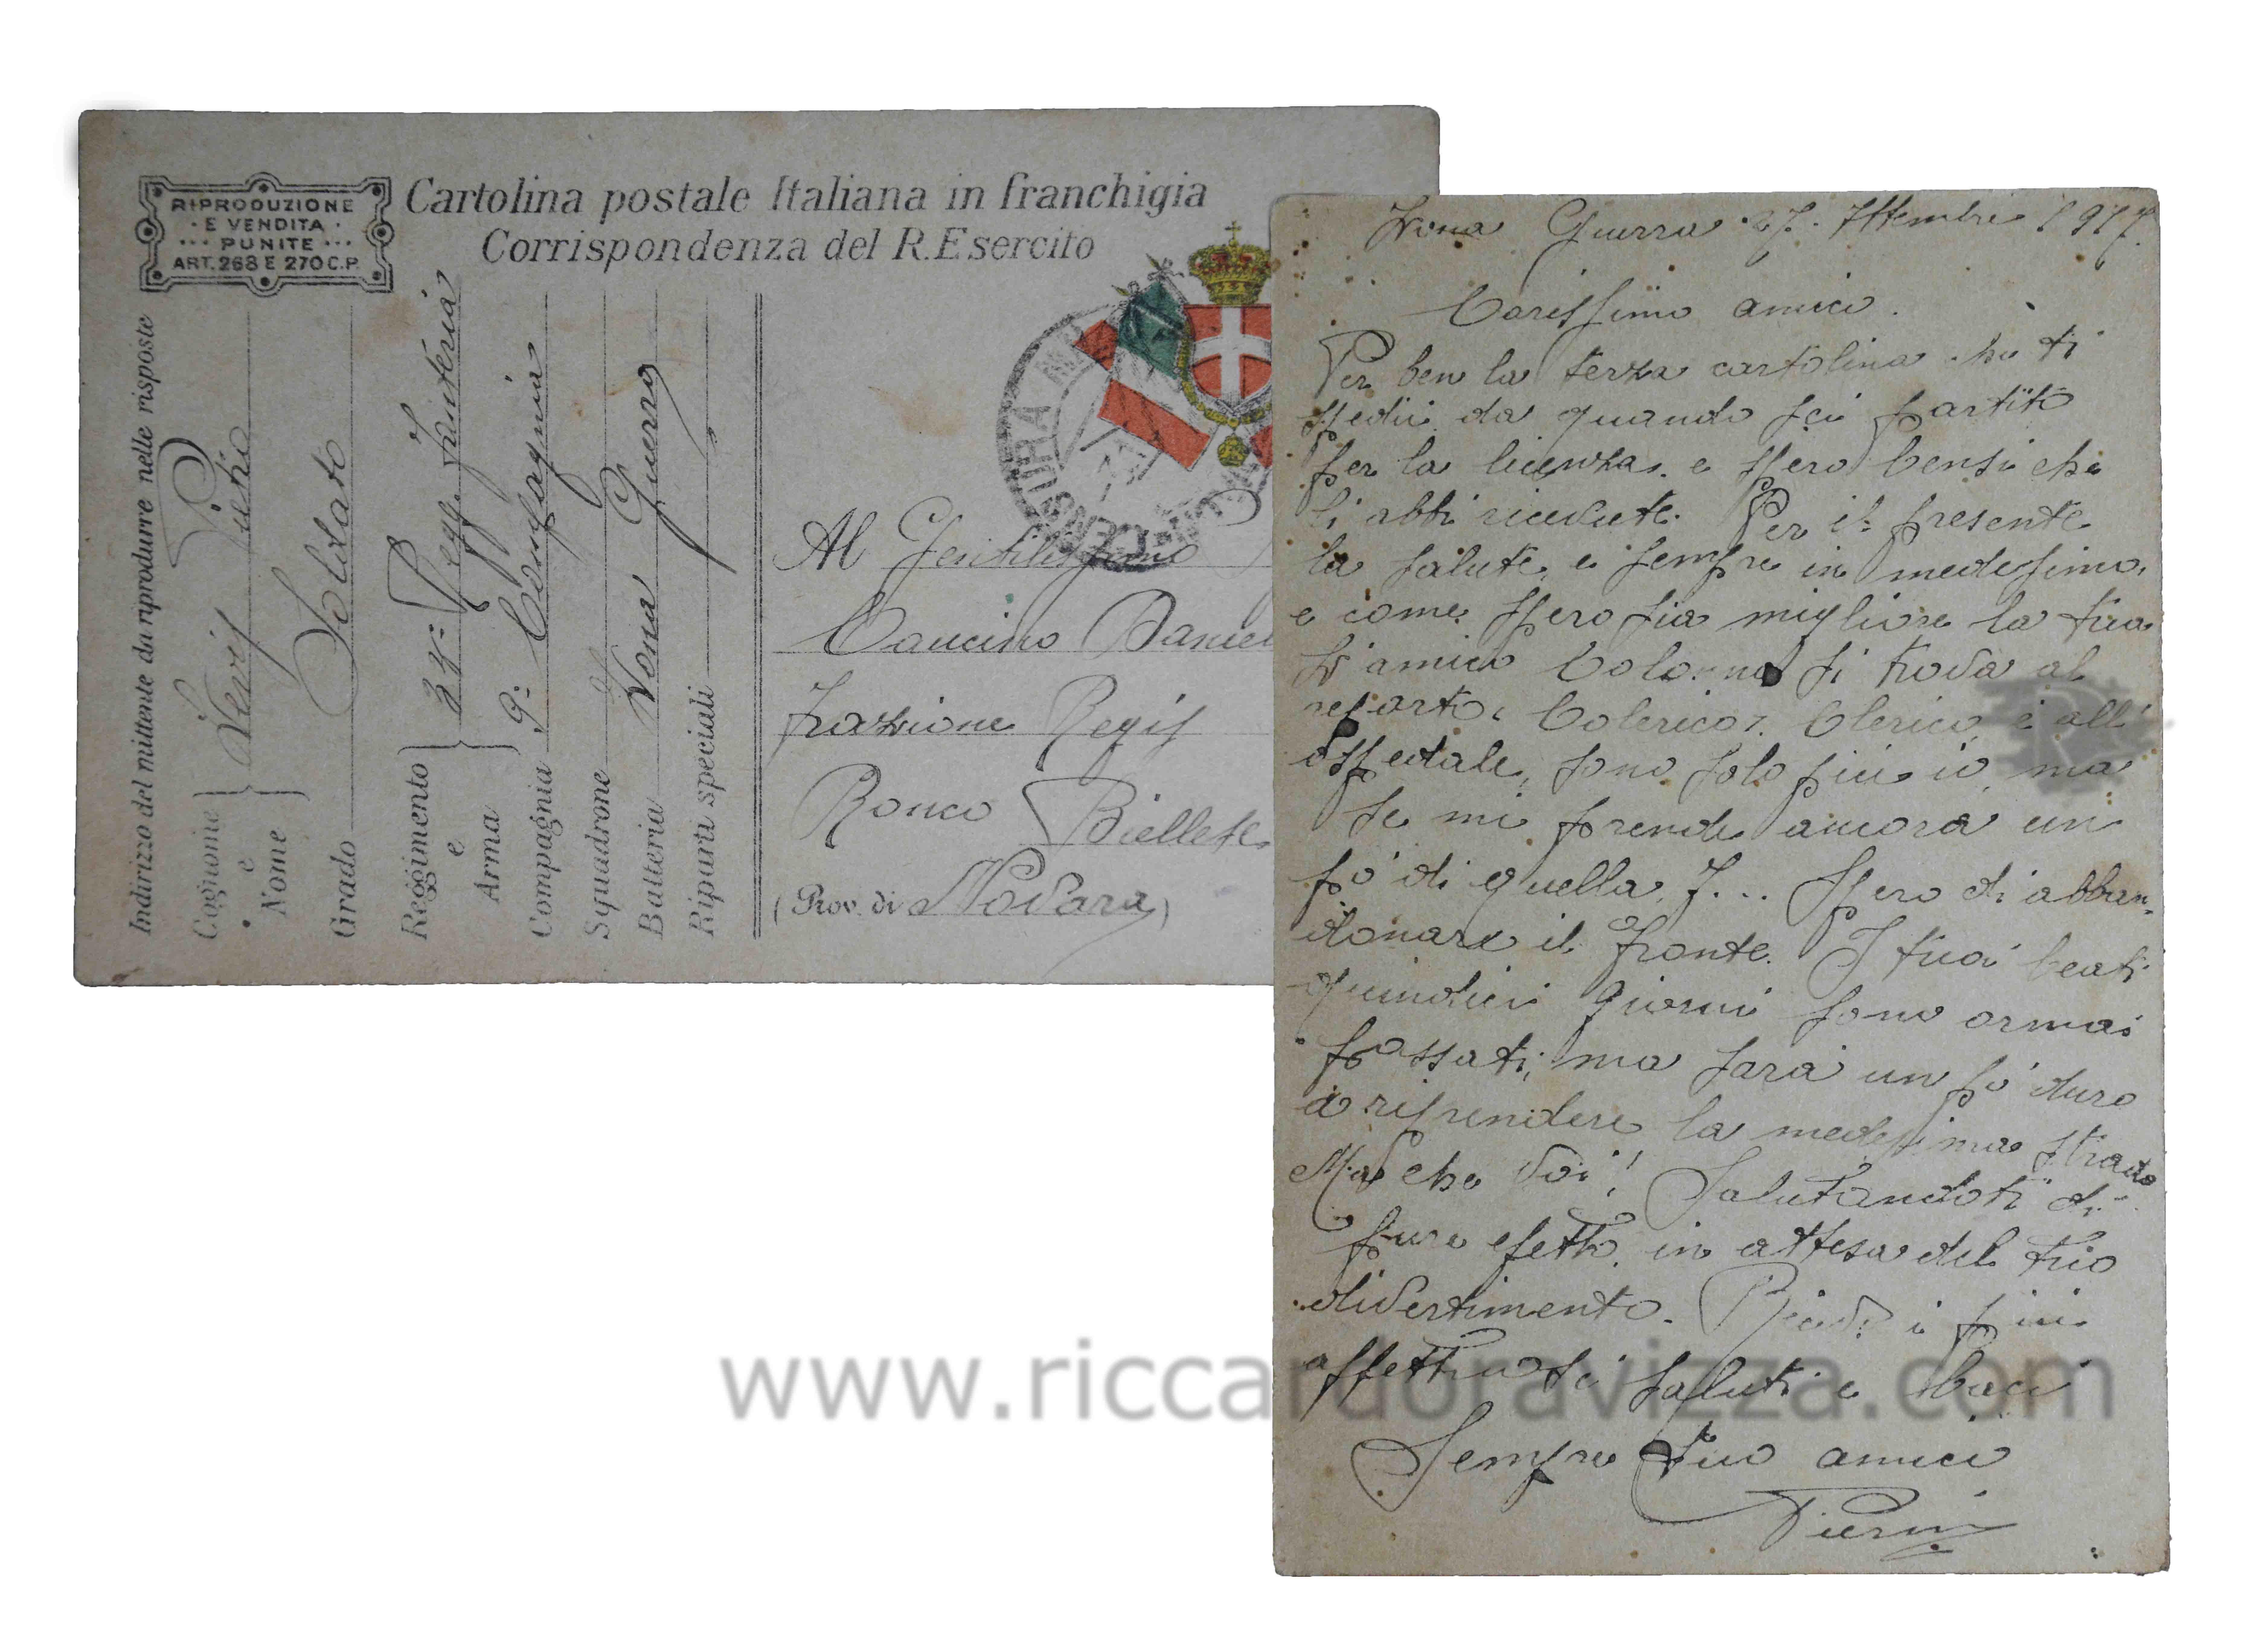 RIPRODUZIONE
E VENDITA
PUNITE
ART. 268 E 270 C.P.
Cartolina postale Italiana in franchigia
Corrispondenza del R. Esercito
Indirizzo del mittente da riprodurre nelle risposte
Cognome e Nome Pietro
Grado Soldato
Reggimento e Arma Regg. Fanteria
Compagnia 9a Compagnia
Squadrone
Batteria Zona Guerra
Riparti speciali
CENSURA
Al Gentilissimo
Caucino Daniel
frazione Regis
Ronco Biellese
(Prov. di Novara)
Zona Guerra 27. 7ttembre 1917.
Carissimo amico.
Per ben la terza cartolina che ti
spedii da quando sei partito
per la licenza. e spero bensi che
li abbi ricevute. Per il presente
la salute, e sempre in medesimo,
e come spero sia migliore la tua
L'amico Colonna si trova al
reparto, Clerico è all'
ospedale, sono solo più io, ma
se mi prende ancora un
po' di quella, f... spero di abban-
donare il fronte. I tuoi beati
quindici giorni sono ormai
passati, ma sarà un po' duro
a riprendere la medesima strada
Ma che voi! Salutandoti di
puro efetto, in attesa del tuo
divertimento. Ricevi i più
affettuosi saluti e baci
Sempre tuo amico
www.riccardoravizza.com